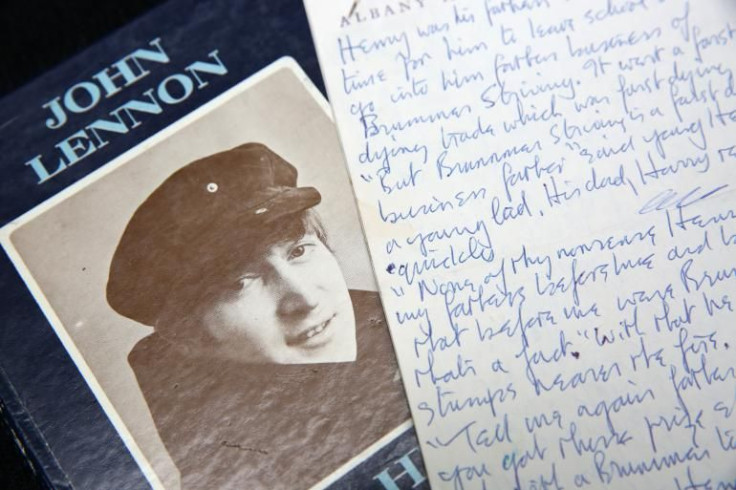 JOHN
LENNON
H
ALBANY
Henry was his fathers
time for him to leave school
go into him fathers business of
Brummer Striving. It wert a farst
dying trade which was farst dying
"But Brummer Striving is a farst d
business farther" said young He
a young lad. His dad, Harry re
quickly
"None of thy nonsense Henr
my fathers before me and
that before me were Brum
thats a fact." With that he
stumps nearer the fire.
"Tell me again father
you got there prize
with a Brummer
Henr